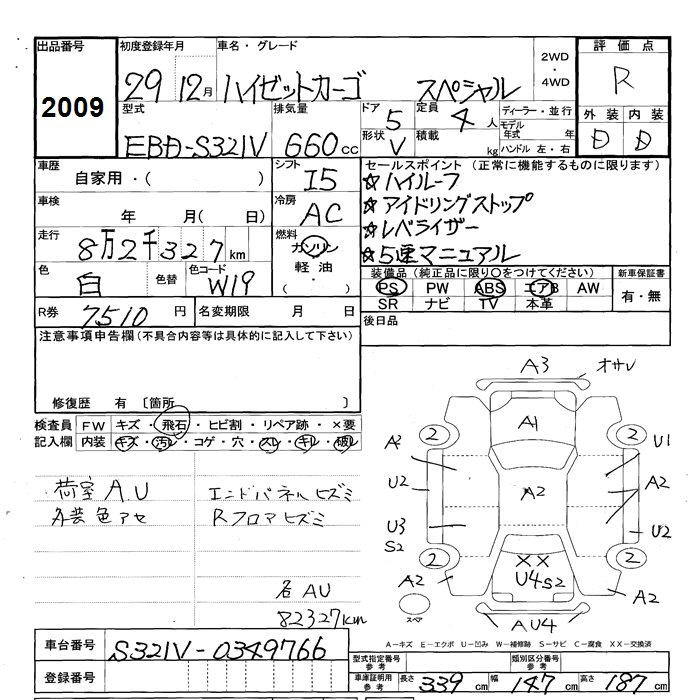 出品番号
2009
初度登録年月
車名・グレード
29 12月 ハイゼットカーゴ スペシャル
2WD
・
4WD
評価点
R
外装 内装
D D
型式
EBD-S321V
排気量
660cc
ドア
5
形状
V
定員
4人
積載
kg
ディーラー・並行
モデル年式 年
ハンドル 左・右
車歴
自家用・( )
シフト
I5
車検
年 月( 日)
冷房
AC
走行
8万2千327km
燃料
ガソリン
軽油・
( )
色
白
色替
色コード
W19
R券
7510円
名変期限 月 日
セールスポイント(正常に機能するものに限ります)
☆ハイルーフ
☆アイドリングストップ
☆レベライザー
☆5速マニュアル
装備品(純正品に限り○をつけてください)
新車保証書
PS PW ABS エアB AW
SR ナビ TV 本革
有・無
後日品
注意事項申告欄(不具合内容等は具体的に記入して下さい)
修復歴 有 〔箇所 〕
検査員
記入欄
FW キズ・飛石・ヒビ割・リペア跡・×要
内装 キズ・汚レ・コゲ・穴・スレ・キレ・破レ
荷室 A.U
エンドパネルヒズミ
外装色アセ
Rフロアヒズミ
名 AU
82327km
A3 オサレ
A1
2 2
A2 U1
U2 A2 A2
U3 U2
S2
2 2
XX
U4S2
A2 A2
スペア
AU4
A-キズ E-エクボ U-凹み W-補修跡 S-サビ C-腐食 XX-交換済
車台番号
S321V-0349766
登録番号
型式指定番号
参考
類別区分番号
参考
車庫証明用
参考
長さ 339cm 幅 147cm 高さ 187cm